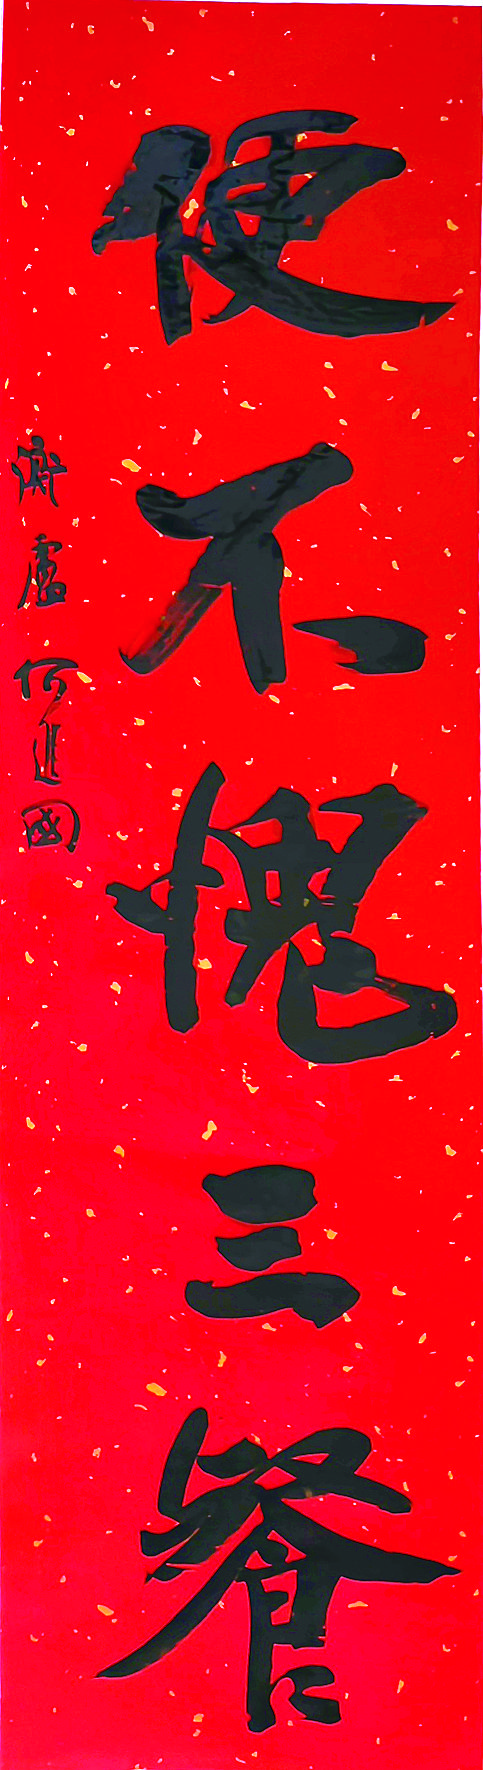 便不愧三餐
盧 何進國